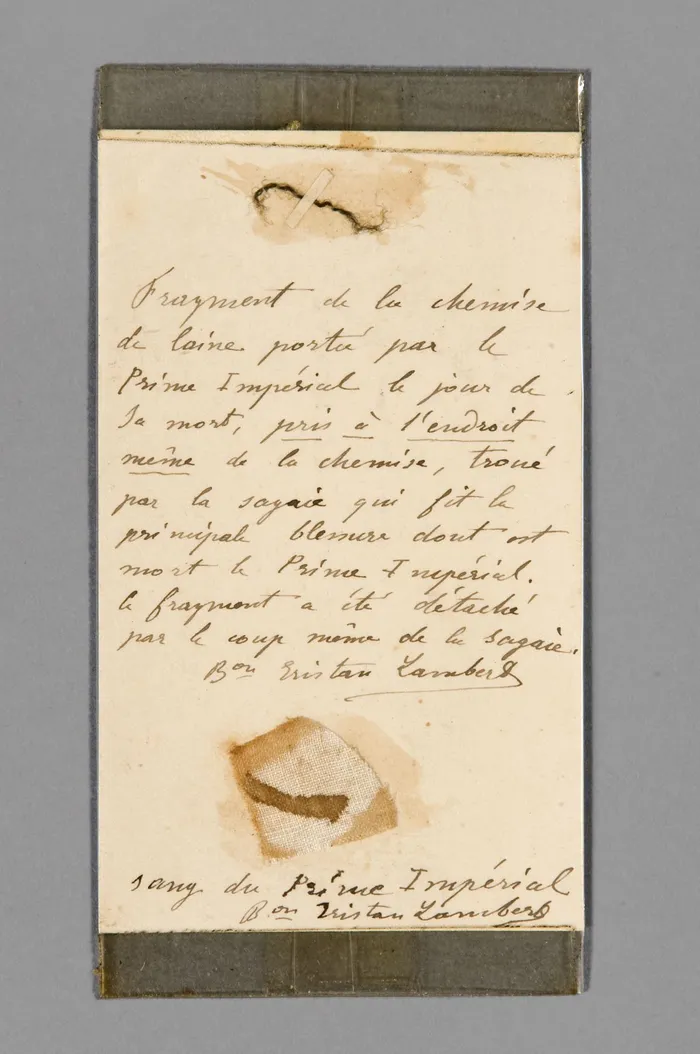 Fragment de la chemise
de laine portée par le
Prince Impérial le jour de
Sa mort, pris à l'endroit
même de la chemise, troué
par la sagaie qui fit la
principale blessure dont est
mort le Prince Impérial.
le fragment a été détaché
par le coup même de la sagaie.
Bon Tristan Lambert
sang du Prince Impérial
Bon Tristan Lambert